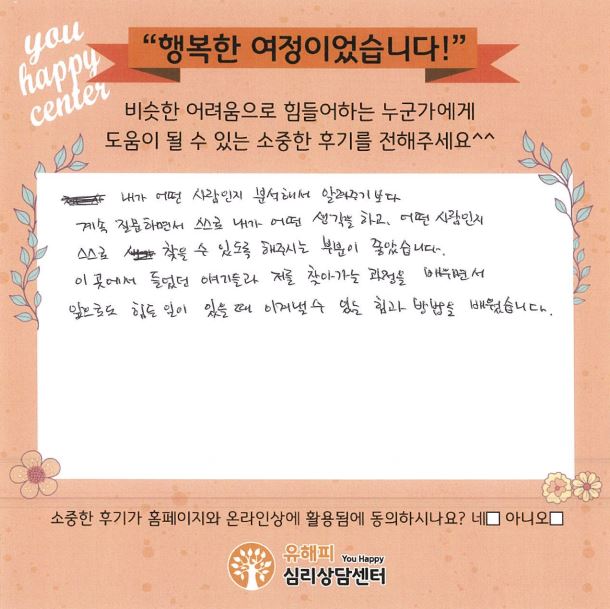 you
happy
center
“행복한 여정이었습니다!”
비슷한 어려움으로 힘들어하는 누군가에게
도움이 될 수 있는 소중한 후기를 전해주세요^^
내가 어떤 사람인지 분석해서 알려주기보다
계속 질문하면서 스스로 내가 어떤 생각을 하고, 어떤 사람인지
스스로 찾을 수 있도록 해주시는 부분이 좋았습니다.
이 곳에서 들었던 얘기들과 저를 찾아가는 과정을 배우면서
앞으로도 힘든 일이 있을 때 이겨낼 수 있는 힘과 방법을 배웠습니다.
소중한 후기가 홈페이지와 온라인상에 활용됨에 동의하시나요? 네□ 아니오□
유해피 You Happy
심리상담센터